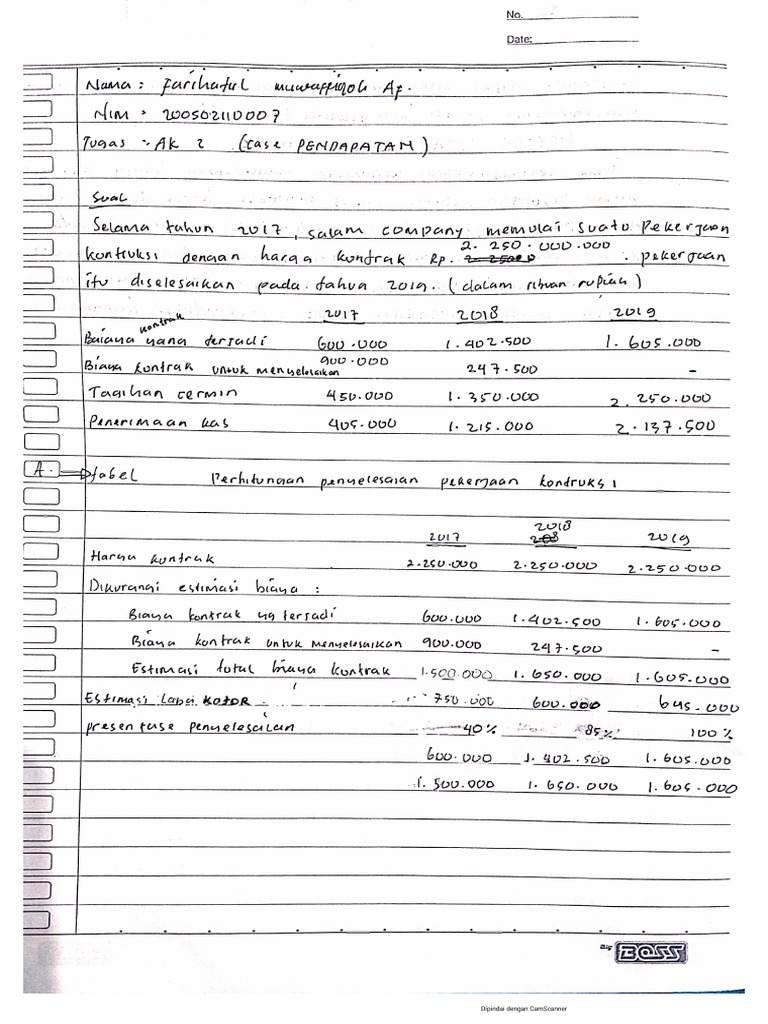 No.
Date:
Nama : Farihatul muwaffiqoh Af.
NIM : 200502110007
Tugas : AK 2 (case PENDAPATAN)
Soal
Selama tahun 2017, salam company memulai suatu Pekerjaan
kontruksi dengan harga kontrak Rp. 2.250.000.000 . pekerjaan
itu diselesaikan pada tahun 2019. (dalam ribuan rupiah)
2017 2018 2019
Baiaya kontrak yang terjadi 600.000 1.402.500 1.605.000
Biaya kontrak untuk menyelesaikan 900.000 247.500 -
Tagihan termin 450.000 1.350.000 2.250.000
Penerimaan kas 405.000 1.215.000 2.137.500
A. tabel Perhitungan penyelesaian pekerjaan kontruksi
2017 2018 2019
Harga kontrak 2.250.000 2.250.000 2.250.000
Dikurangi estimasi biaya :
Biaya kontrak yg terjadi 600.000 1.402.500 1.605.000
Biaya kontrak untuk menyelesaikan 900.000 247.500 -
Estimasi total biaya kontrak 1.500.000 1.650.000 1.605.000
Estimasi Laba KOTOR 750.000 600.000 645.000
presentase penyelesaian 40% 85% 100%
600.000 1.402.500 1.605.000
1.500.000 1.650.000 1.605.000
BOSS
Dipindai dengan CamScanner